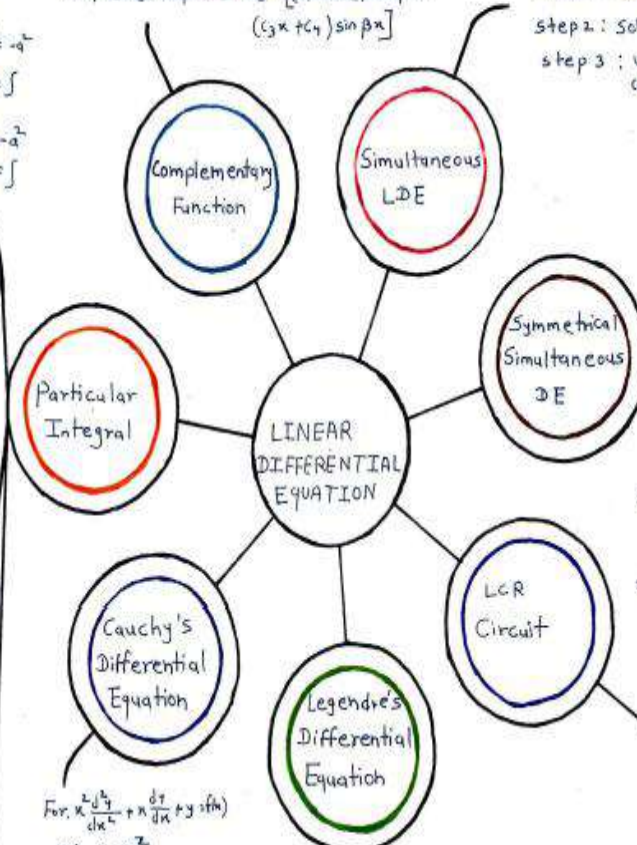 (c₃x + c₄) sin βx]
step 2 :
step 3 :
-a²
∫
-a²
∫
Complementary
Function
Simultaneous
LDE
Symmetrical
Simultaneous
DE
Particular
Integral
LINEAR
DIFFERENTIAL
EQUATION
LCR
Circuit
Cauchy's
Differential
Equation
Legendre's
Differential
Equation
For, x² d²y/dx² + x dy/dx + y = f(x)